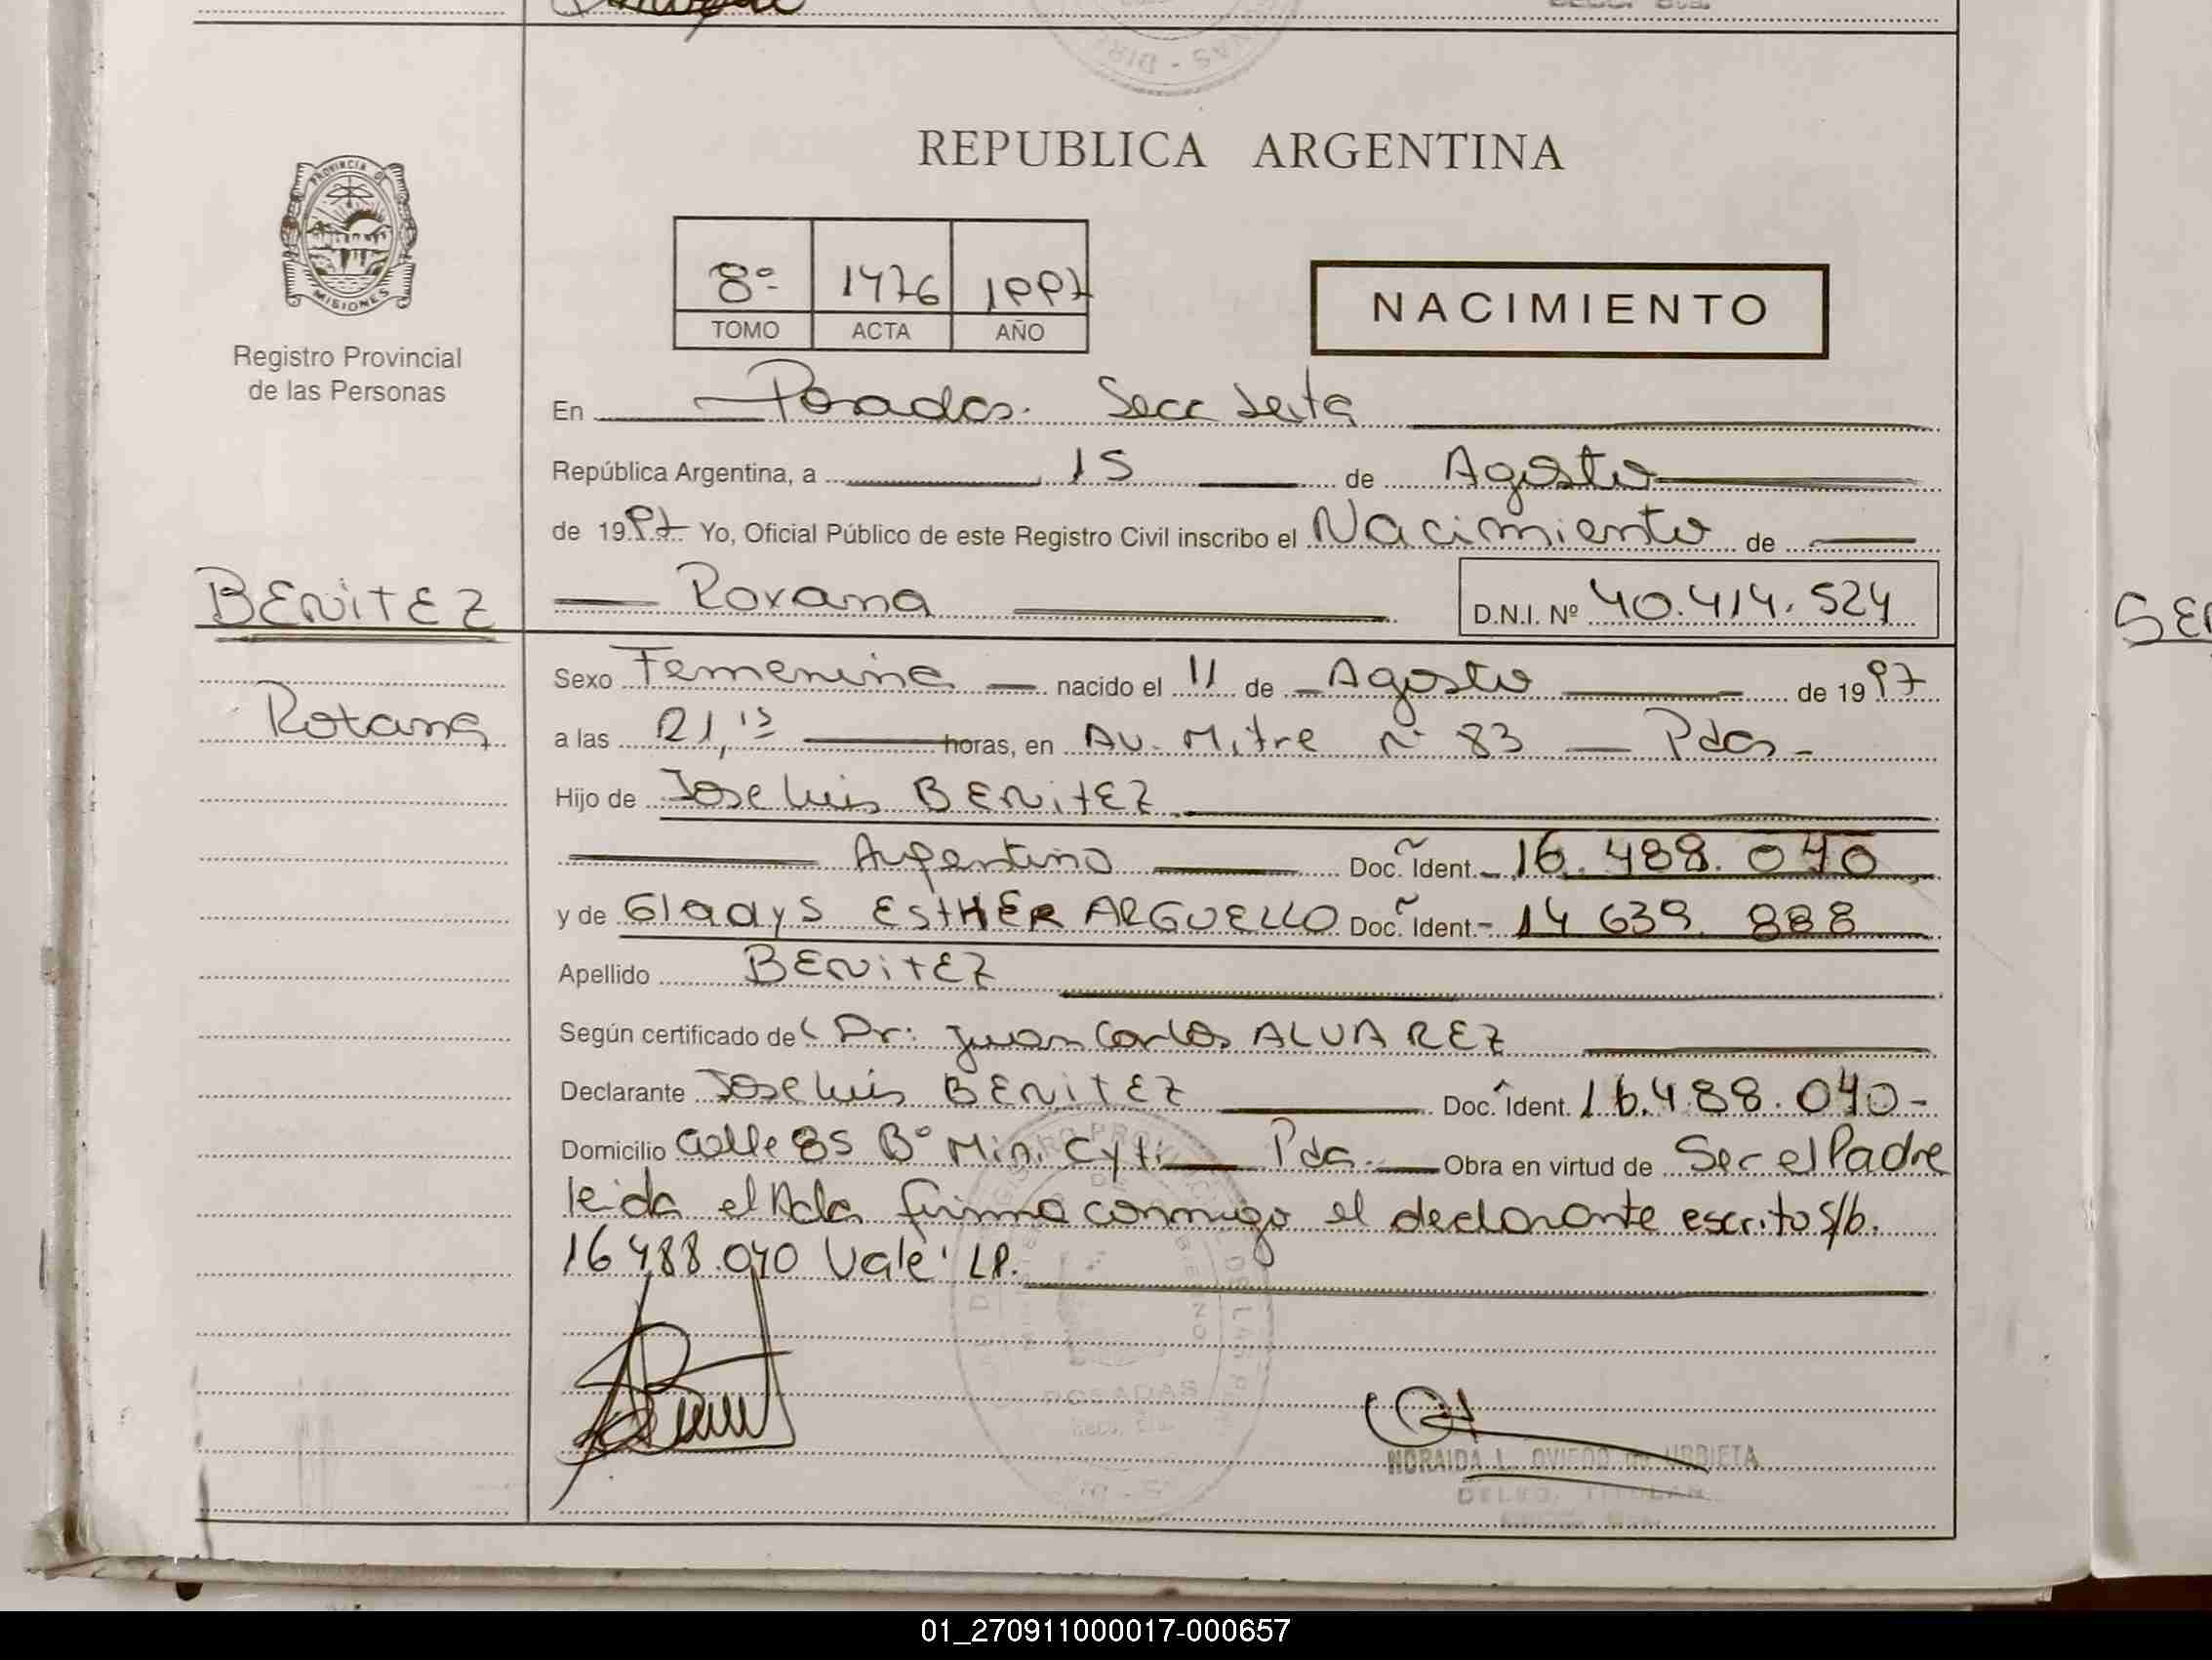 REPUBLICA ARGENTINA
PROVINCIA DE
MISIONES
Registro Provincial
de las Personas
8º 1476 1997
TOMO ACTA AÑO
NACIMIENTO
En Posadas. Secc Sexta
República Argentina, a 15 de Agosto
de 1997 Yo, Oficial Público de este Registro Civil inscribo el Nacimiento de
BENITEZ
Roxana D.N.I. Nº 40.414.524
Sexo Femenina nacido el 11 de Agosto de 1997
Roxana
a las 21,15 horas, en Av. Mitre Nº 83 Pdas -
Hijo de Jose Luis BENITEZ
Argentino Doc. Ident. 16.488.040
y de Gladys ESTHER ARGUELLO Doc. Ident. 14 639 888
Apellido BENITEZ
Según certificado de Dr: Juan Carlos ALVAREZ
Declarante Jose Luis BENITEZ Doc. Ident. 16.488.040-
Domicilio Calle 85 Bº Mini City Pdas. Obra en virtud de Ser el Padre
leida el Acta firma conmigo el declarante escrito s/b.
16 488.040 Vale
POSADAS
NORAIDA L. OVIEDO de URBIETA
DELEG. TITULAR
01_270911000017-000657